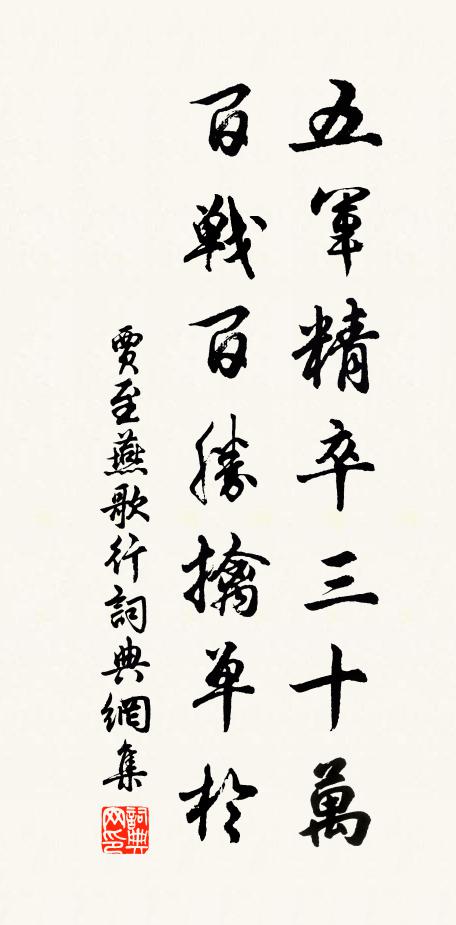 五軍精卒三十萬
百戰百勝擒單於
賈至燕歌行詞典網集
詞典
网印